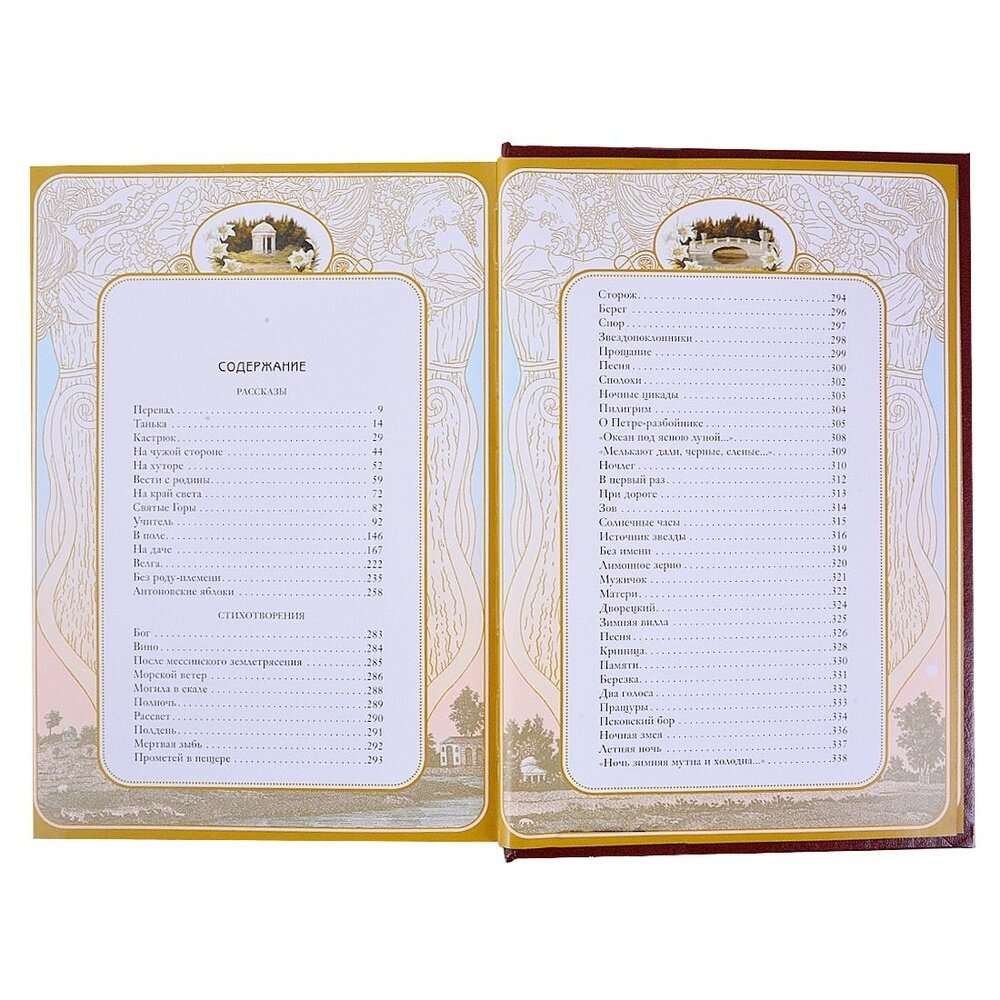 СОДЕРЖАНИЕ
РАССКАЗЫ
Перевал 9
Танька 14
Кастрюк 29
На чужой стороне 44
На хуторе 52
Вести с родины 59
На край света 72
Святые Горы 82
Учитель 92
В поле 146
На даче 167
Велга 222
Без роду-племени 235
Антоновские яблоки 258
СТИХОТВОРЕНИЯ
Бог 283
Вино 284
После мессинского землетрясения 285
Морской ветер 286
Могила в скале 288
Полночь 289
Рассвет 290
Полдень 291
Мертвая зыбь 292
Прометей в пещере 293
Сторож 294
Берег 296
Спор 297
Звездопоклонники 298
Прощание 299
Песня 300
Сполохи 302
Ночные цикады 303
Пилигрим 304
О Петре-разбойнике 305
«Океан под ясною луной...» 308
«Мелькают дали, черные, слепые...» 309
Ночлег 310
В первый раз 312
При дороге 313
Зов 314
Солнечные часы 315
Источник звезды 316
Без имени 319
Лимонное зерно 320
Мужичок 321
Матери 322
Дворецкий 324
Зимняя вилла 325
Песня 326
Криница 328
Памяти 330
Березка 331
Два голоса 332
Пращуры 333
Псковский бор 334
Ночная змея 336
Летняя ночь 337
«Ночь зимняя мутна и холодна...» 338